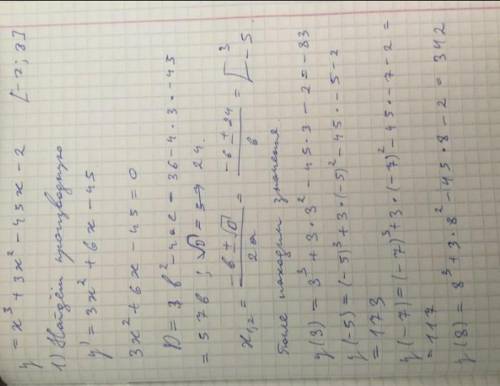 y = x³ + 3x² - 45x - 2 [-7; 8]
1) Найдём производную
y' = 3x² + 6x - 45
3x² + 6x - 45 = 0
D = b² - 4ac = 36 - 4 · 3 · -45
= 576 ; √D = 24.
x₁,₂ = (-b ± √D) / 2a = (-6 ± 24) / 6 = [ 3 -5.
находим значения
y(3) = 3³ + 3 · 3² - 45 · 3 - 2 = -83
y(-5) = (-5)³ + 3 · (-5)² - 45 · -5 - 2
= 173
y(-7) = (-7)³ + 3 · (-7)² - 45 · -7 - 2 =
= 117
y(8) = 8³ + 3 · 8² - 45 · 8 - 2 = 342